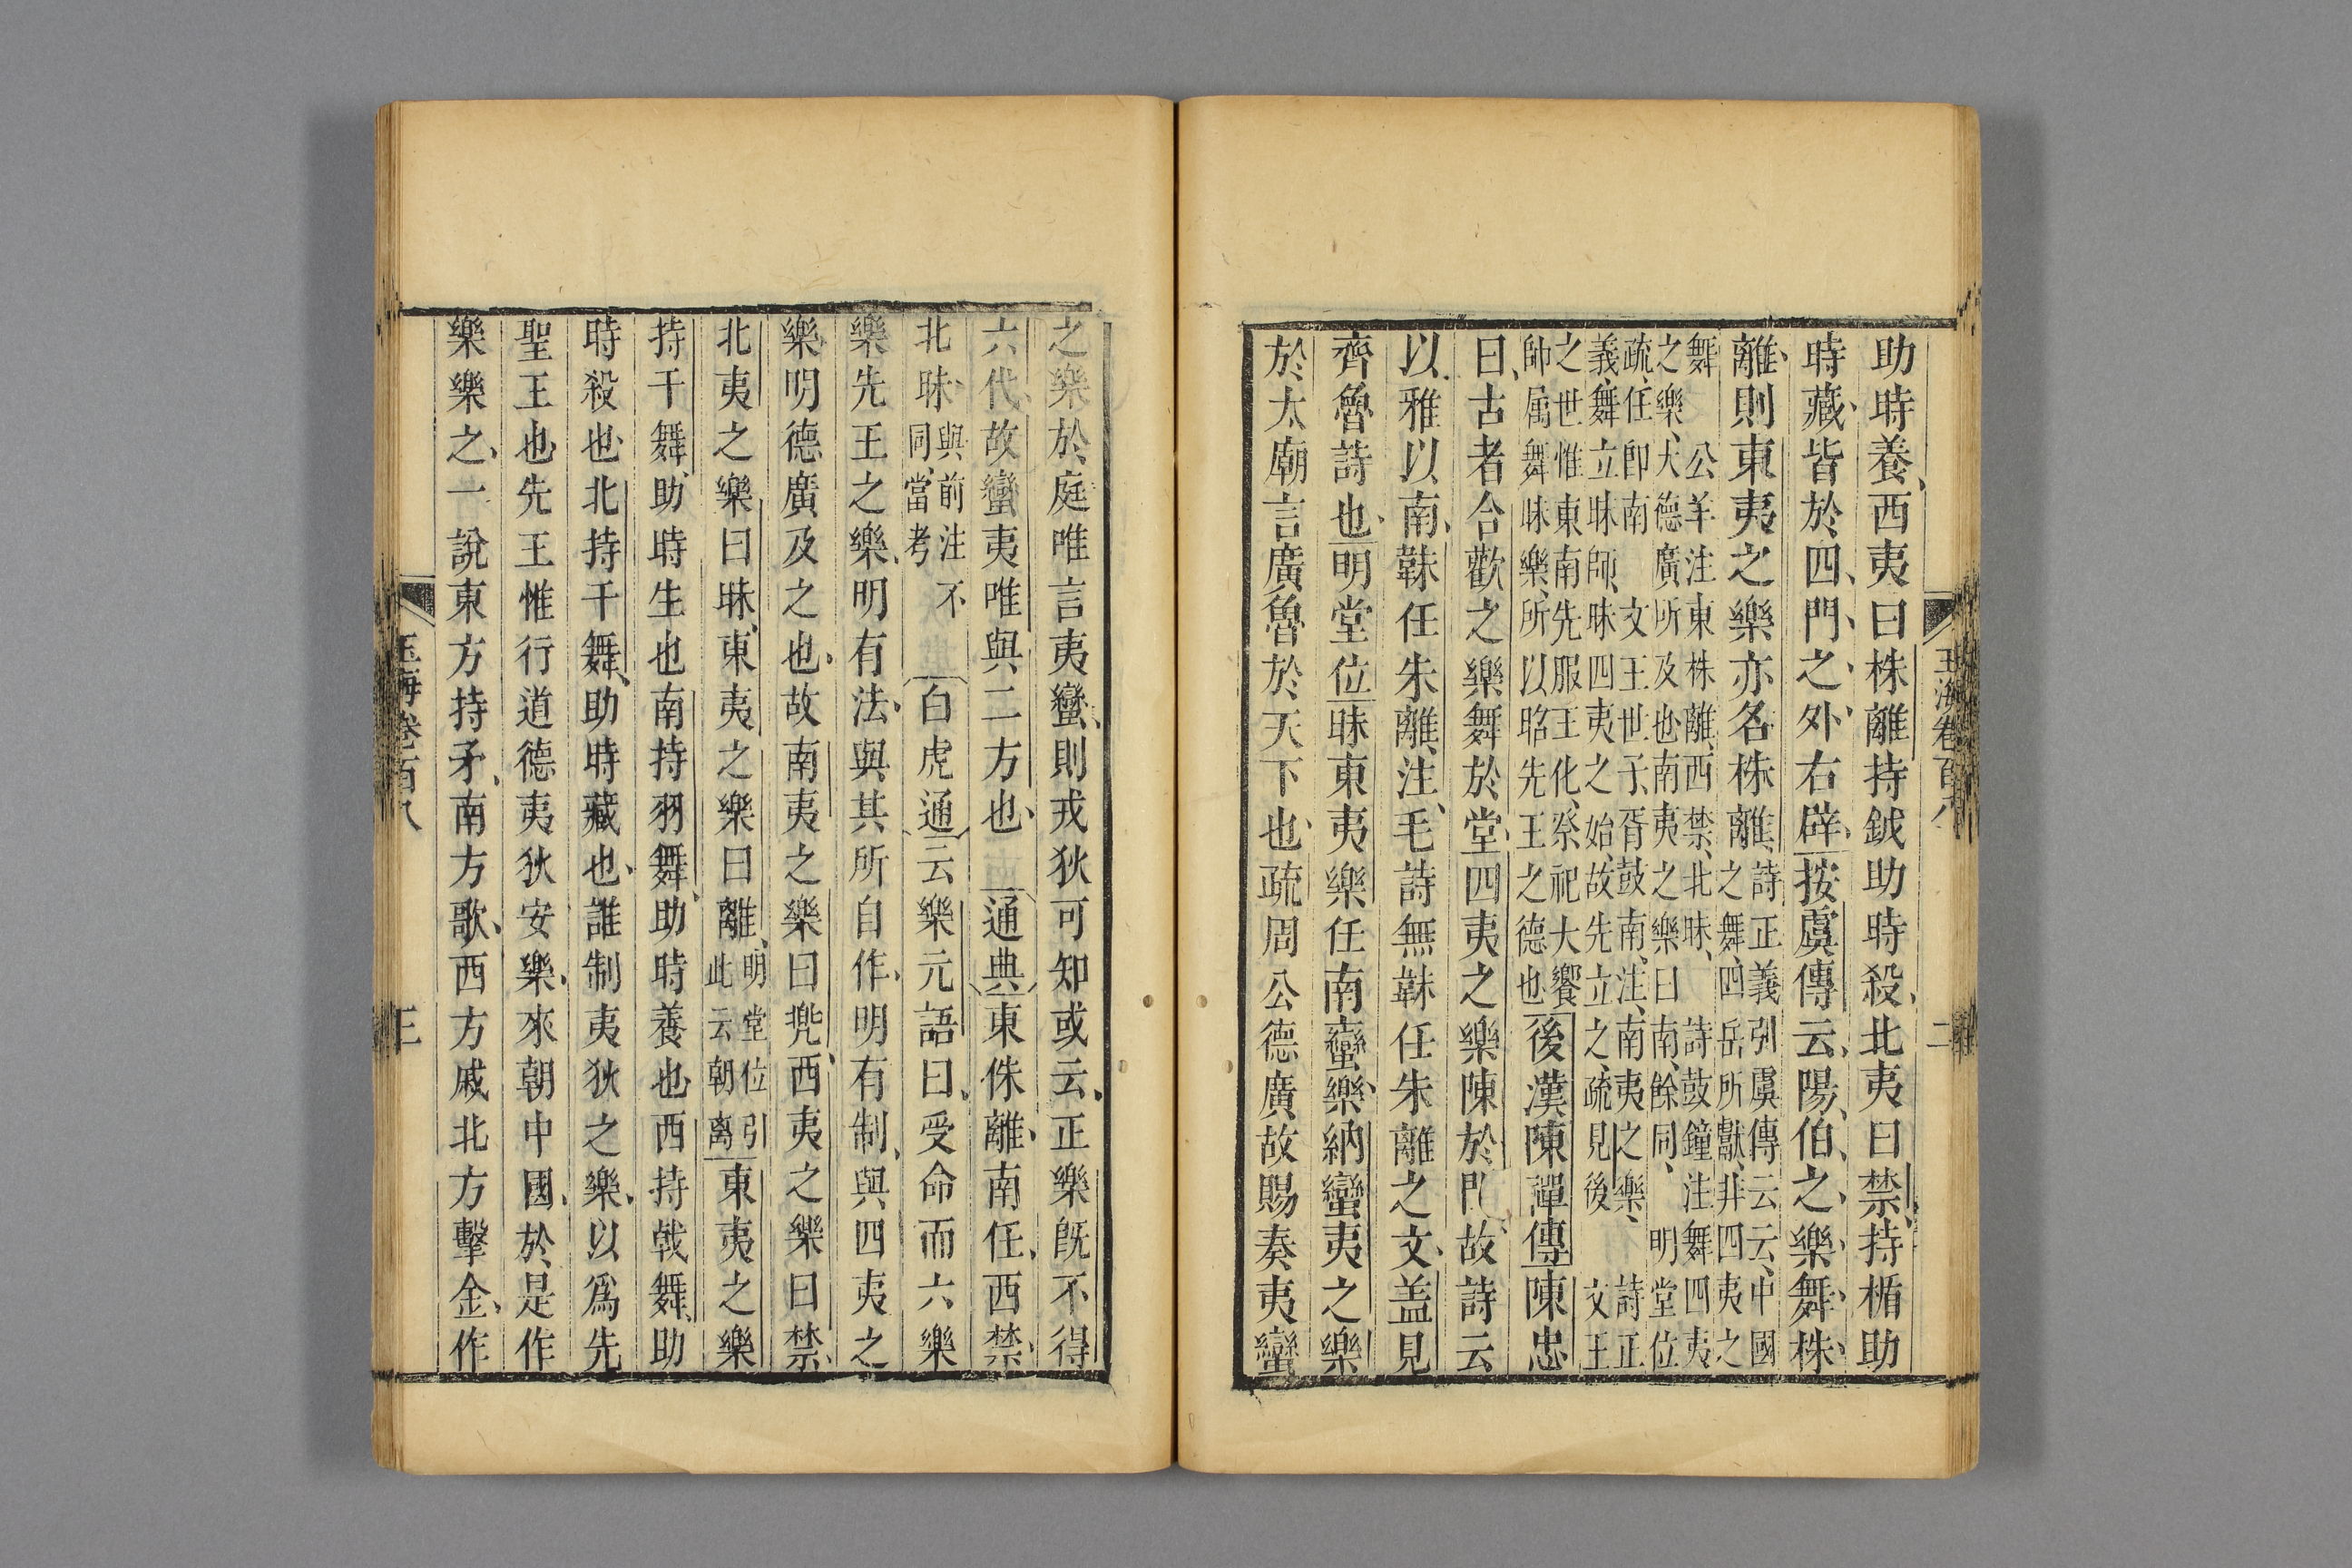 玉海卷百八
二
助時養西夷曰株離持鉞助時殺北夷曰禁持楯助
時藏皆於四門之外右辟按虞傳云陽伯之樂舞株
離則東夷之樂亦名株離
詩正義引虞傳云云中國
之舞四岳所獻非四夷之
舞 公羊注東株離西禁北昧 詩鼓鐘注舞四夷
之樂大德廣所及也南夷之樂曰南餘同 明堂位
疏任即南 文王世子胥鼓南注南夷之樂 詩正
義舞立昧師昧四夷之始故先立之疏見後 文王
之世惟東南先服王化祭祀大饗
帥属舞昧樂所以昭先王之德也
後漢陳禪傳陳忠
曰古者合歡之樂舞於堂四夷之樂陳於門故詩云
以雅以南韎任朱離注毛詩無韎任朱離之文盖見
齊魯詩也明堂位昧東夷樂任南蠻樂納蠻夷之樂
於太廟言廣魯於天下也疏周公德廣故賜奏夷蠻
之樂於庭唯言夷蠻則戎狄可知或云正樂旣不得
六代故蠻夷唯與二方也通典東侏離南任西禁
北昧
與前注不
同當考
白虎通云樂元語曰受命而六樂
樂先王之樂明有法與其所自作明有制與四夷之
樂明德廣及之也故南夷之樂曰兠西夷之樂曰禁
北夷之樂曰昧東夷之樂曰離
明堂位引
此云朝离
東夷之樂
持干舞助時生也南持羽舞助時養也西持戟舞助
時殺也北持干舞助時藏也誰制夷狄之樂以爲先
聖王也先王惟行道德夷狄安樂來朝中國於是作
樂樂之一說東方持矛南方歌西方戚北方擊金作
玉海卷百八
三